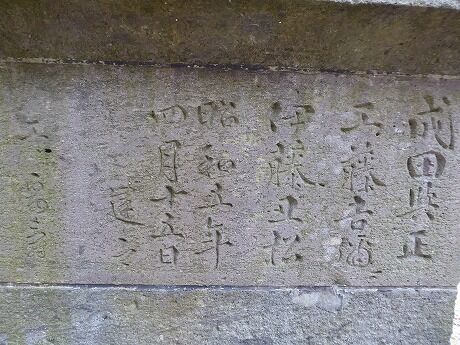 成田與正
工藤吉
伊藤丑松
昭和五年
四月十五日
建之